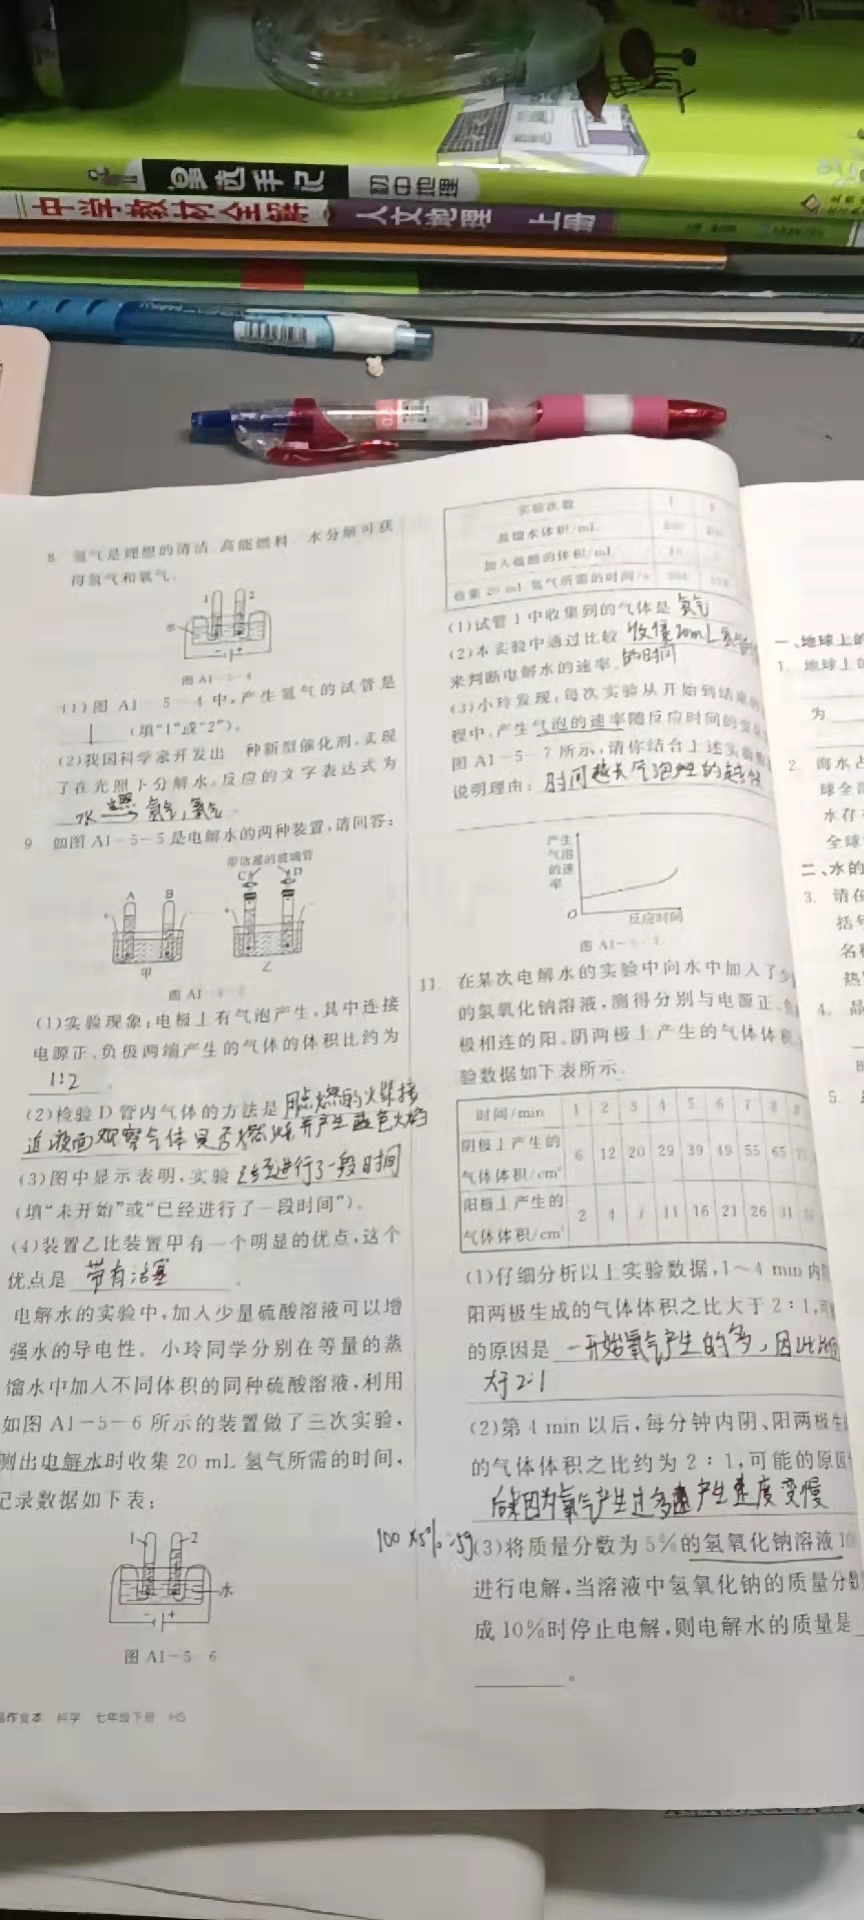 漫选手记
初中地理
中学教材全解
人文地理 上册
8 氢气是理想的清洁、高能燃料 水分解可获
得氢气和氧气.
1 2
水
(1)图 A1－5－4中,产生氢气的试管是
1 (填“1”或“2”)。
(2)我国科学家开发出一种新型催化剂,实现
了在光照下分解水,反应的文字表达式为
水
9 如图 A1－5－5是电解水的两种装置,请回答:
带活塞的玻璃管
A B
C D
甲
乙
图 A1
(1)实验现象:电极上有气泡产生,其中连接
电源正、负极两端产生的气体的体积比约为
1:2 。
(2)检验 D 管内气体的方法是 用点燃的火柴接
近液面观察气体是否燃烧并产生蓝色火焰
(3)图中显示表明,实验 已经进行了一段时间
(填“未开始”或“已经进行了一段时间”)。
(4)装置乙比装置甲有一个明显的优点,这个
优点是 带有活塞 。
电解水的实验中,加入少量硫酸溶液可以增
强水的导电性。小玲同学分别在等量的蒸
馏水中加入不同体积的同种硫酸溶液,利用
如图 A1－5－6 所示的装置做了三次实验,
测出电解水时收集 20 mL 氢气所需的时间,
记录数据如下表:
1 2
水
图 A1－5－6
作业本 科学 七年级下册 HS
实验次数 1
蒸馏水体积/mL
加入硫酸的体积/mL
收集 20 mL 氢气所需的时间/s
(1)试管 1 中收集到的气体是 氢气
(2)本实验中通过比较 收集20mL氢气
的时间
来判断电解水的速率.
(3)小玲发现,每次实验从开始到结束的
程中,产生气泡的速率随反应时间的变化
图 A1－5－7 所示,请你结合上述实验
说明理由: 时间越长气泡产生的越快
产生
气泡
的速
率
O
反应时间
图 A1
11. 在某次电解水的实验中向水中加入了少
的氢氧化钠溶液,测得分别与电源正、负
极相连的阳、阴两极上产生的气体体积,
验数据如下表所示.
时间/min 1 2 3 4 5 6 7 8
阴极上产生的
气体体积/cm³ 6 12 20 29 39 49 55 65
阳极上产生的
气体体积/cm³ 2 4 7 11 16 21 26 31
(1)仔细分析以上实验数据,1～4 min 内
阳两极生成的气体体积之比大于 2∶1,可
的原因是 一开始氧气产生的多,因此
大于2:1
(2)第 4 min 以后,每分钟内阴、阳两极生
的气体体积之比约为 2∶1,可能的原因
后来因为氧气产生过多 产生速度变慢
100×5%=5g
(3)将质量分数为 5%的氢氧化钠溶液 10
进行电解,当溶液中氢氧化钠的质量分数
成 10%时停止电解,则电解水的质量是
。
一、地球上的
1. 地球上的
为
2. 海水占
球全部
水存
全球
二、水的
3. 请在
括号
名称
热
4.
5.